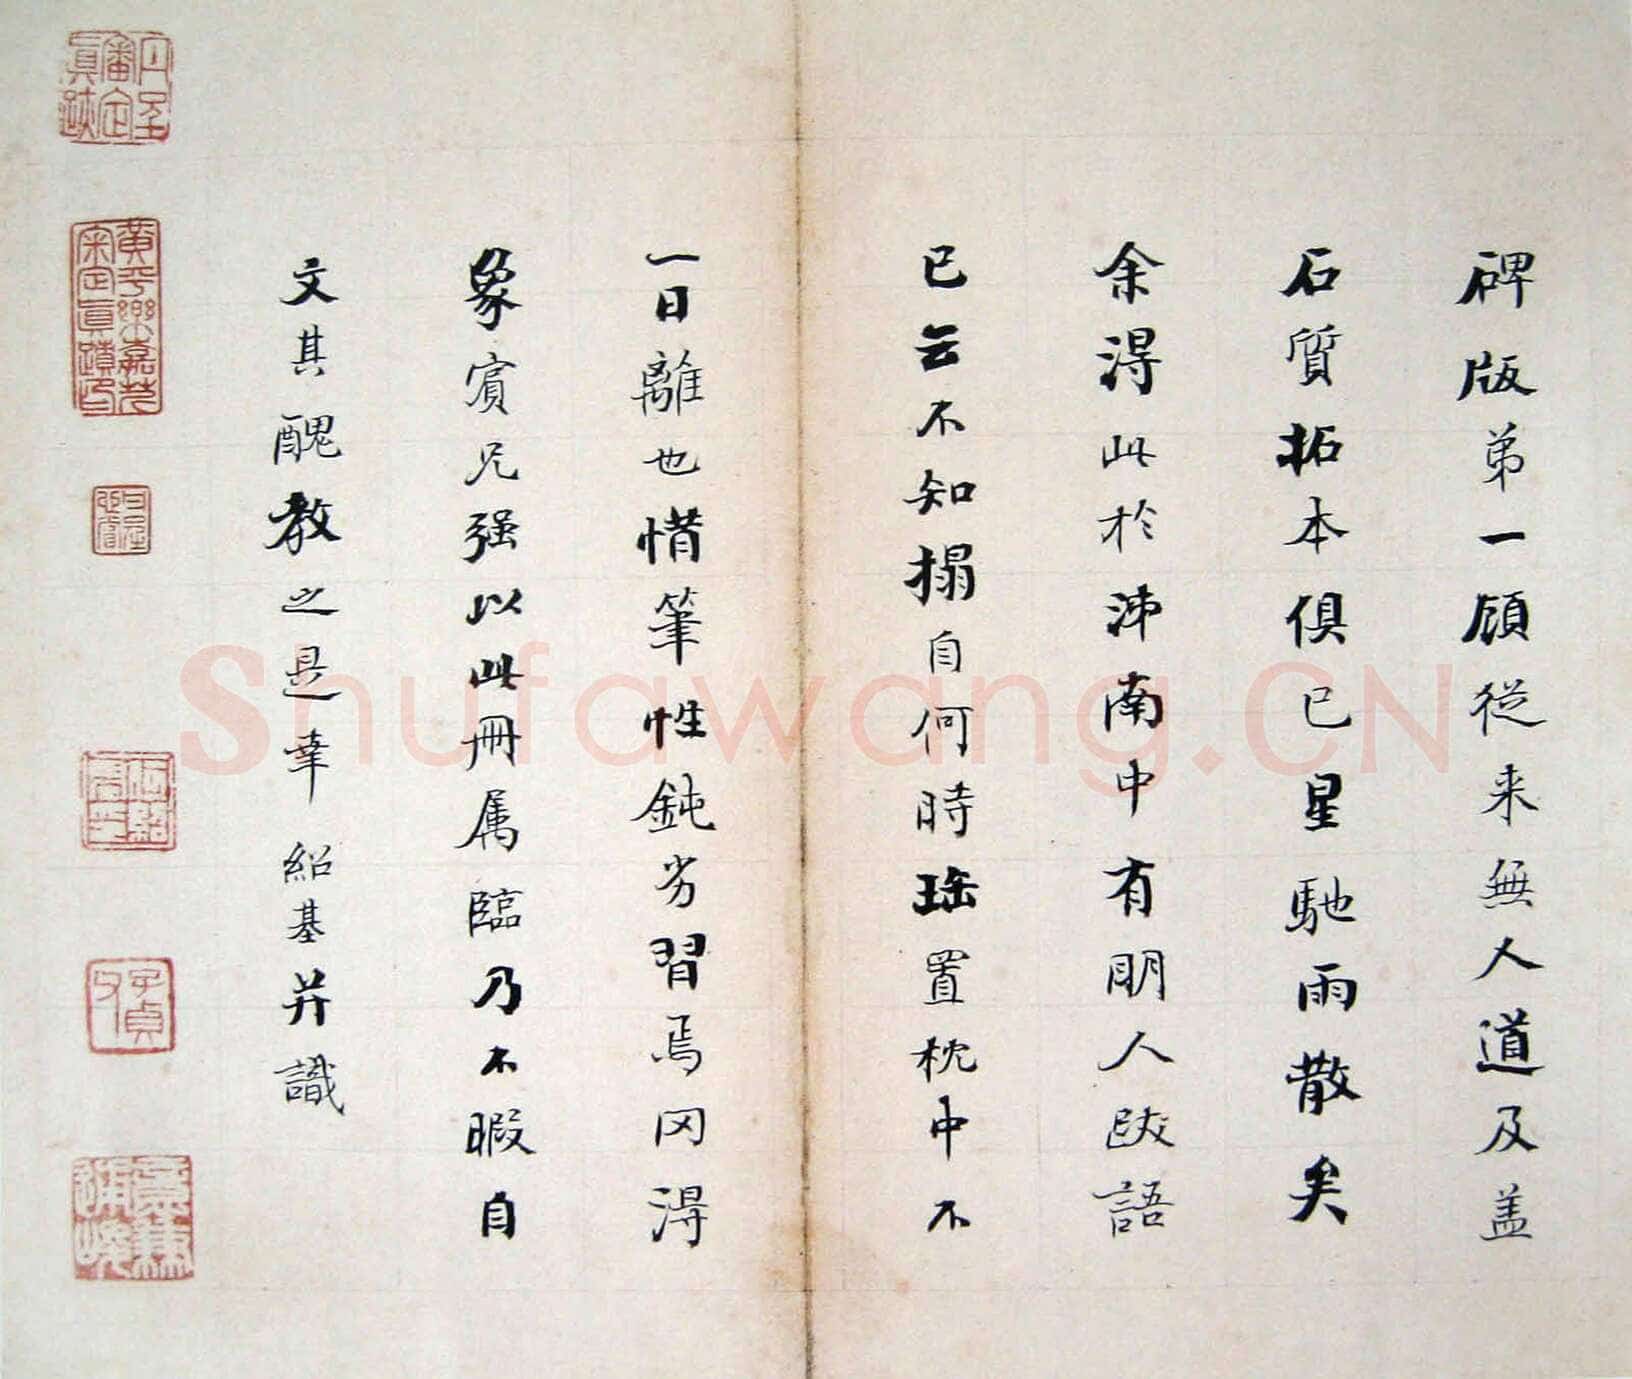 碑版弟一顧從来無人道及盖
石質拓本俱已星馳雨散矣
余淂此於沛南中有朙人跋語
已云不知搨自何時珤置枕中不
一日離也惜筆性鈍劣習焉罔淂
象賓兄强以此冊属臨乃不暇自
文其醜教之是幸 紹基并識
黃平樂嘉荃
審定真蹟印
子貞
Shufawang.CN